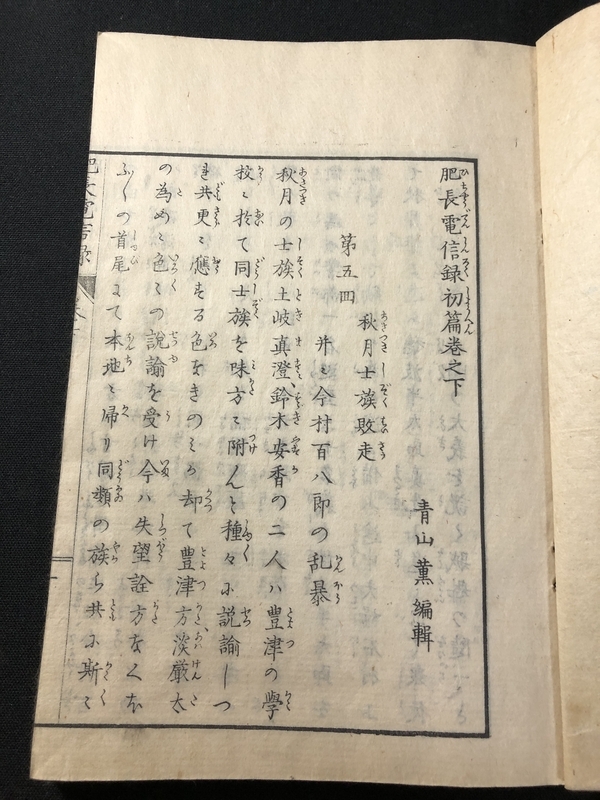 肥長電信録初篇巻之下
青山薫編輯
第五回
秋月士族敗走
并ニ今村百八郎の乱暴
秋月の士族土岐真澄、鈴木安香の二人ハ豊津の学
校ニ於て同士族を味方ニ附んと種々に説諭しつ
れ共更ニ応ずる色をきのミか却て豊津方淡厳太
の為めに色々の説諭を受け今ハ失望詮方なくなほ
ふくの首尾にて本地ニ帰り同類の族ら共に斯と